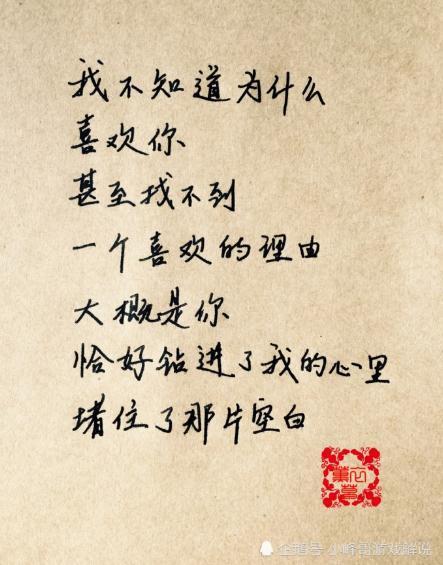 我不知道为什么
喜欢你
甚至找不到
一个喜欢的理由
大概是你
恰好钻进了我的心里
堵住了那片空白
企鹅号 小峰哥游戏解说